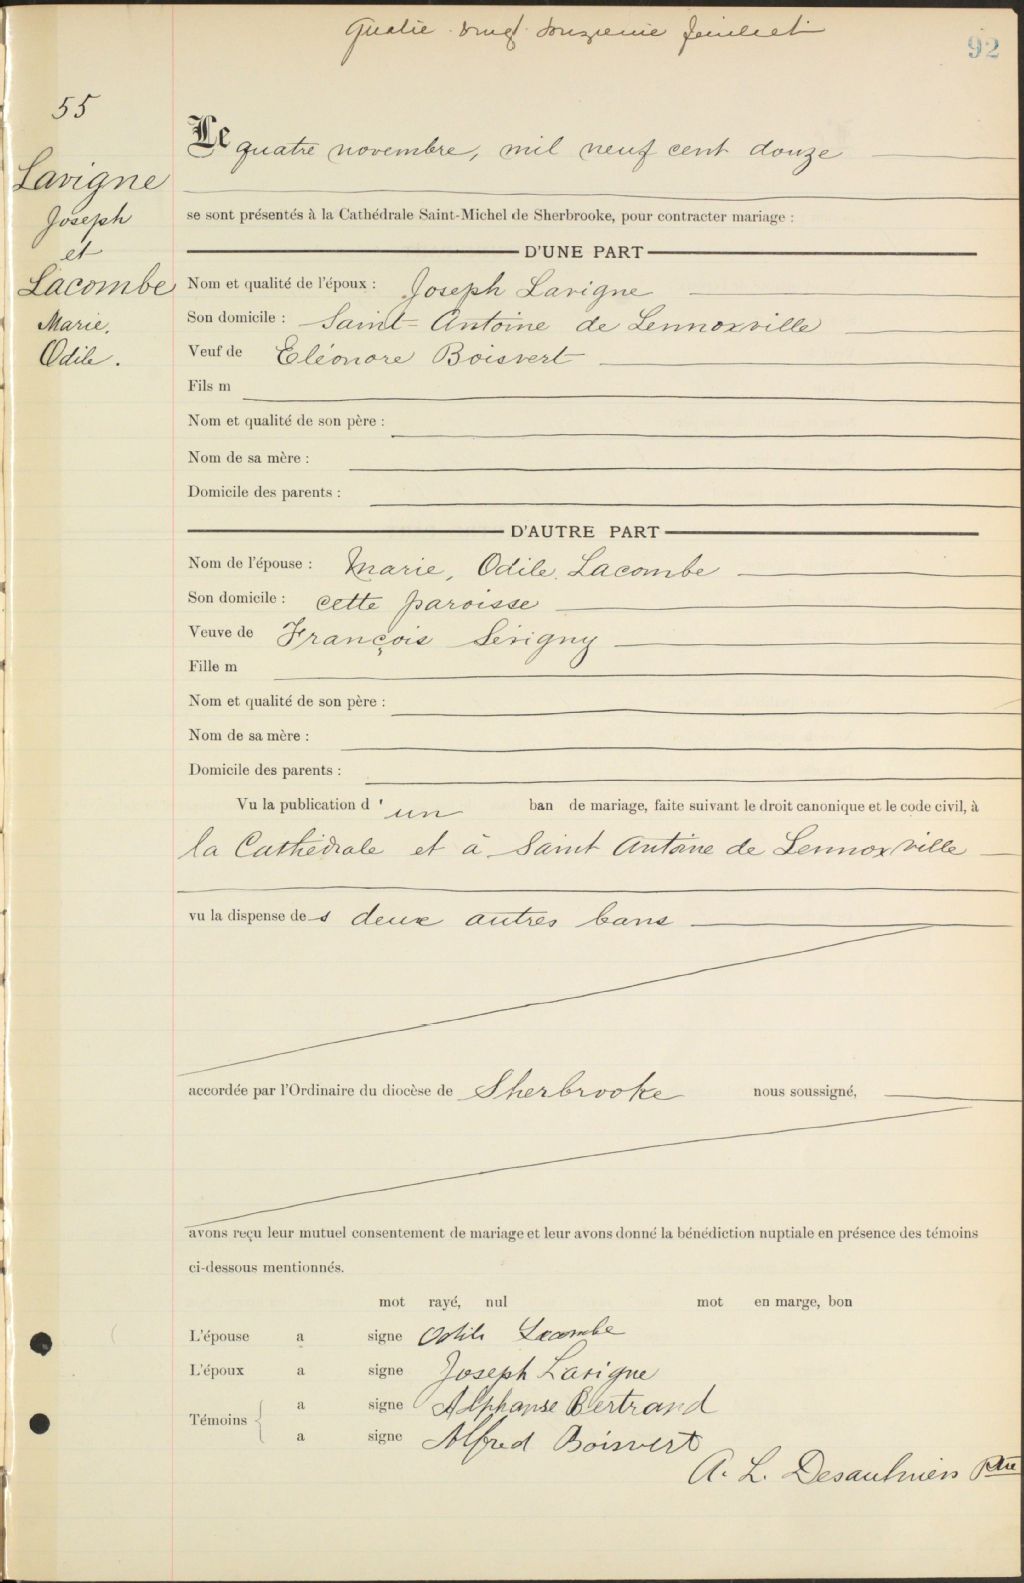 Quatre vingt douzième feuillet
92
55
Lavigne
Joseph
et
Lacombe
Marie,
Odile.
Le quatre novembre, mil neuf cent douze
se sont présentés à la Cathédrale Saint-Michel de Sherbrooke, pour contracter mariage :
D'UNE PART
Nom et qualité de l'époux : Joseph Lavigne
Son domicile : Saint-Antoine de Lennoxville
Veuf de Eléonore Boisvert
Fils m
Nom et qualité de son père :
Nom de sa mère :
Domicile des parents :
D'AUTRE PART
Nom de l'épouse : Marie, Odile, Lacombe
Son domicile : cette paroisse
Veuve de François Sévigny
Fille m
Nom et qualité de son père :
Nom de sa mère :
Domicile des parents :
Vu la publication d'un ban de mariage, faite suivant le droit canonique et le code civil, à
la Cathédrale et à Saint Antoine de Lennoxville
vu la dispense des deux autres bans
accordée par l'Ordinaire du diocèse de Sherbrooke nous soussigné,
avons reçu leur mutuel consentement de mariage et leur avons donné la bénédiction nuptiale en présence des témoins
ci-dessous mentionnés.
mot rayé, nul mot en marge, bon
L'épouse a signe Odile Lacombe
L'époux a signe Joseph Lavigne
Témoins { a signe Alphonse Bertrand
a signe Alfred Boisvert
A. L. Desaulniers Ptre